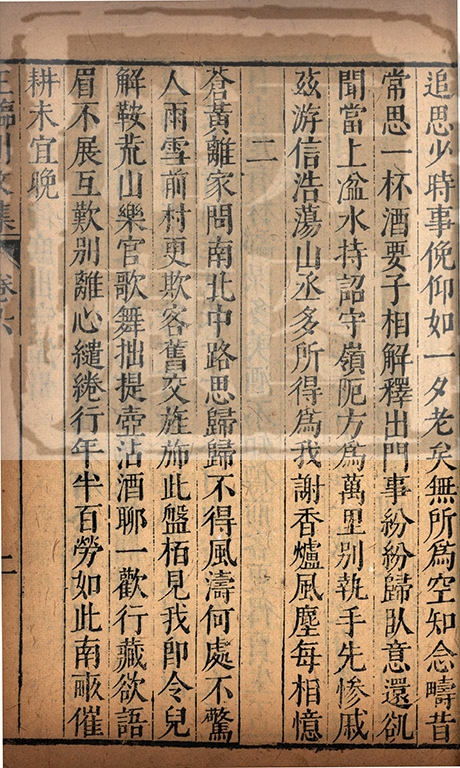 追思少時事俛仰如一夕老矣無所為空知念疇昔
常思一杯酒要子相解釋出門事紛紛歸臥意還欲
聞當上湓水持詔守嶺阨方為萬里別執手先慘戚
茲游信浩蕩山丞多所得為我謝香爐風塵每相憶
二
蒼黃離家問南北中路思歸歸不得風濤何處不驚
人雨雪前村更欺客舊交旌斾此盤栢見我即令兒
解鞍荒山樂官歌舞拙提壺沽酒聊一歡行藏欲語
眉不展互歎別離心繾綣行年半百勞如此南畝催
耕未宜晚
王臨川文集
卷六
二